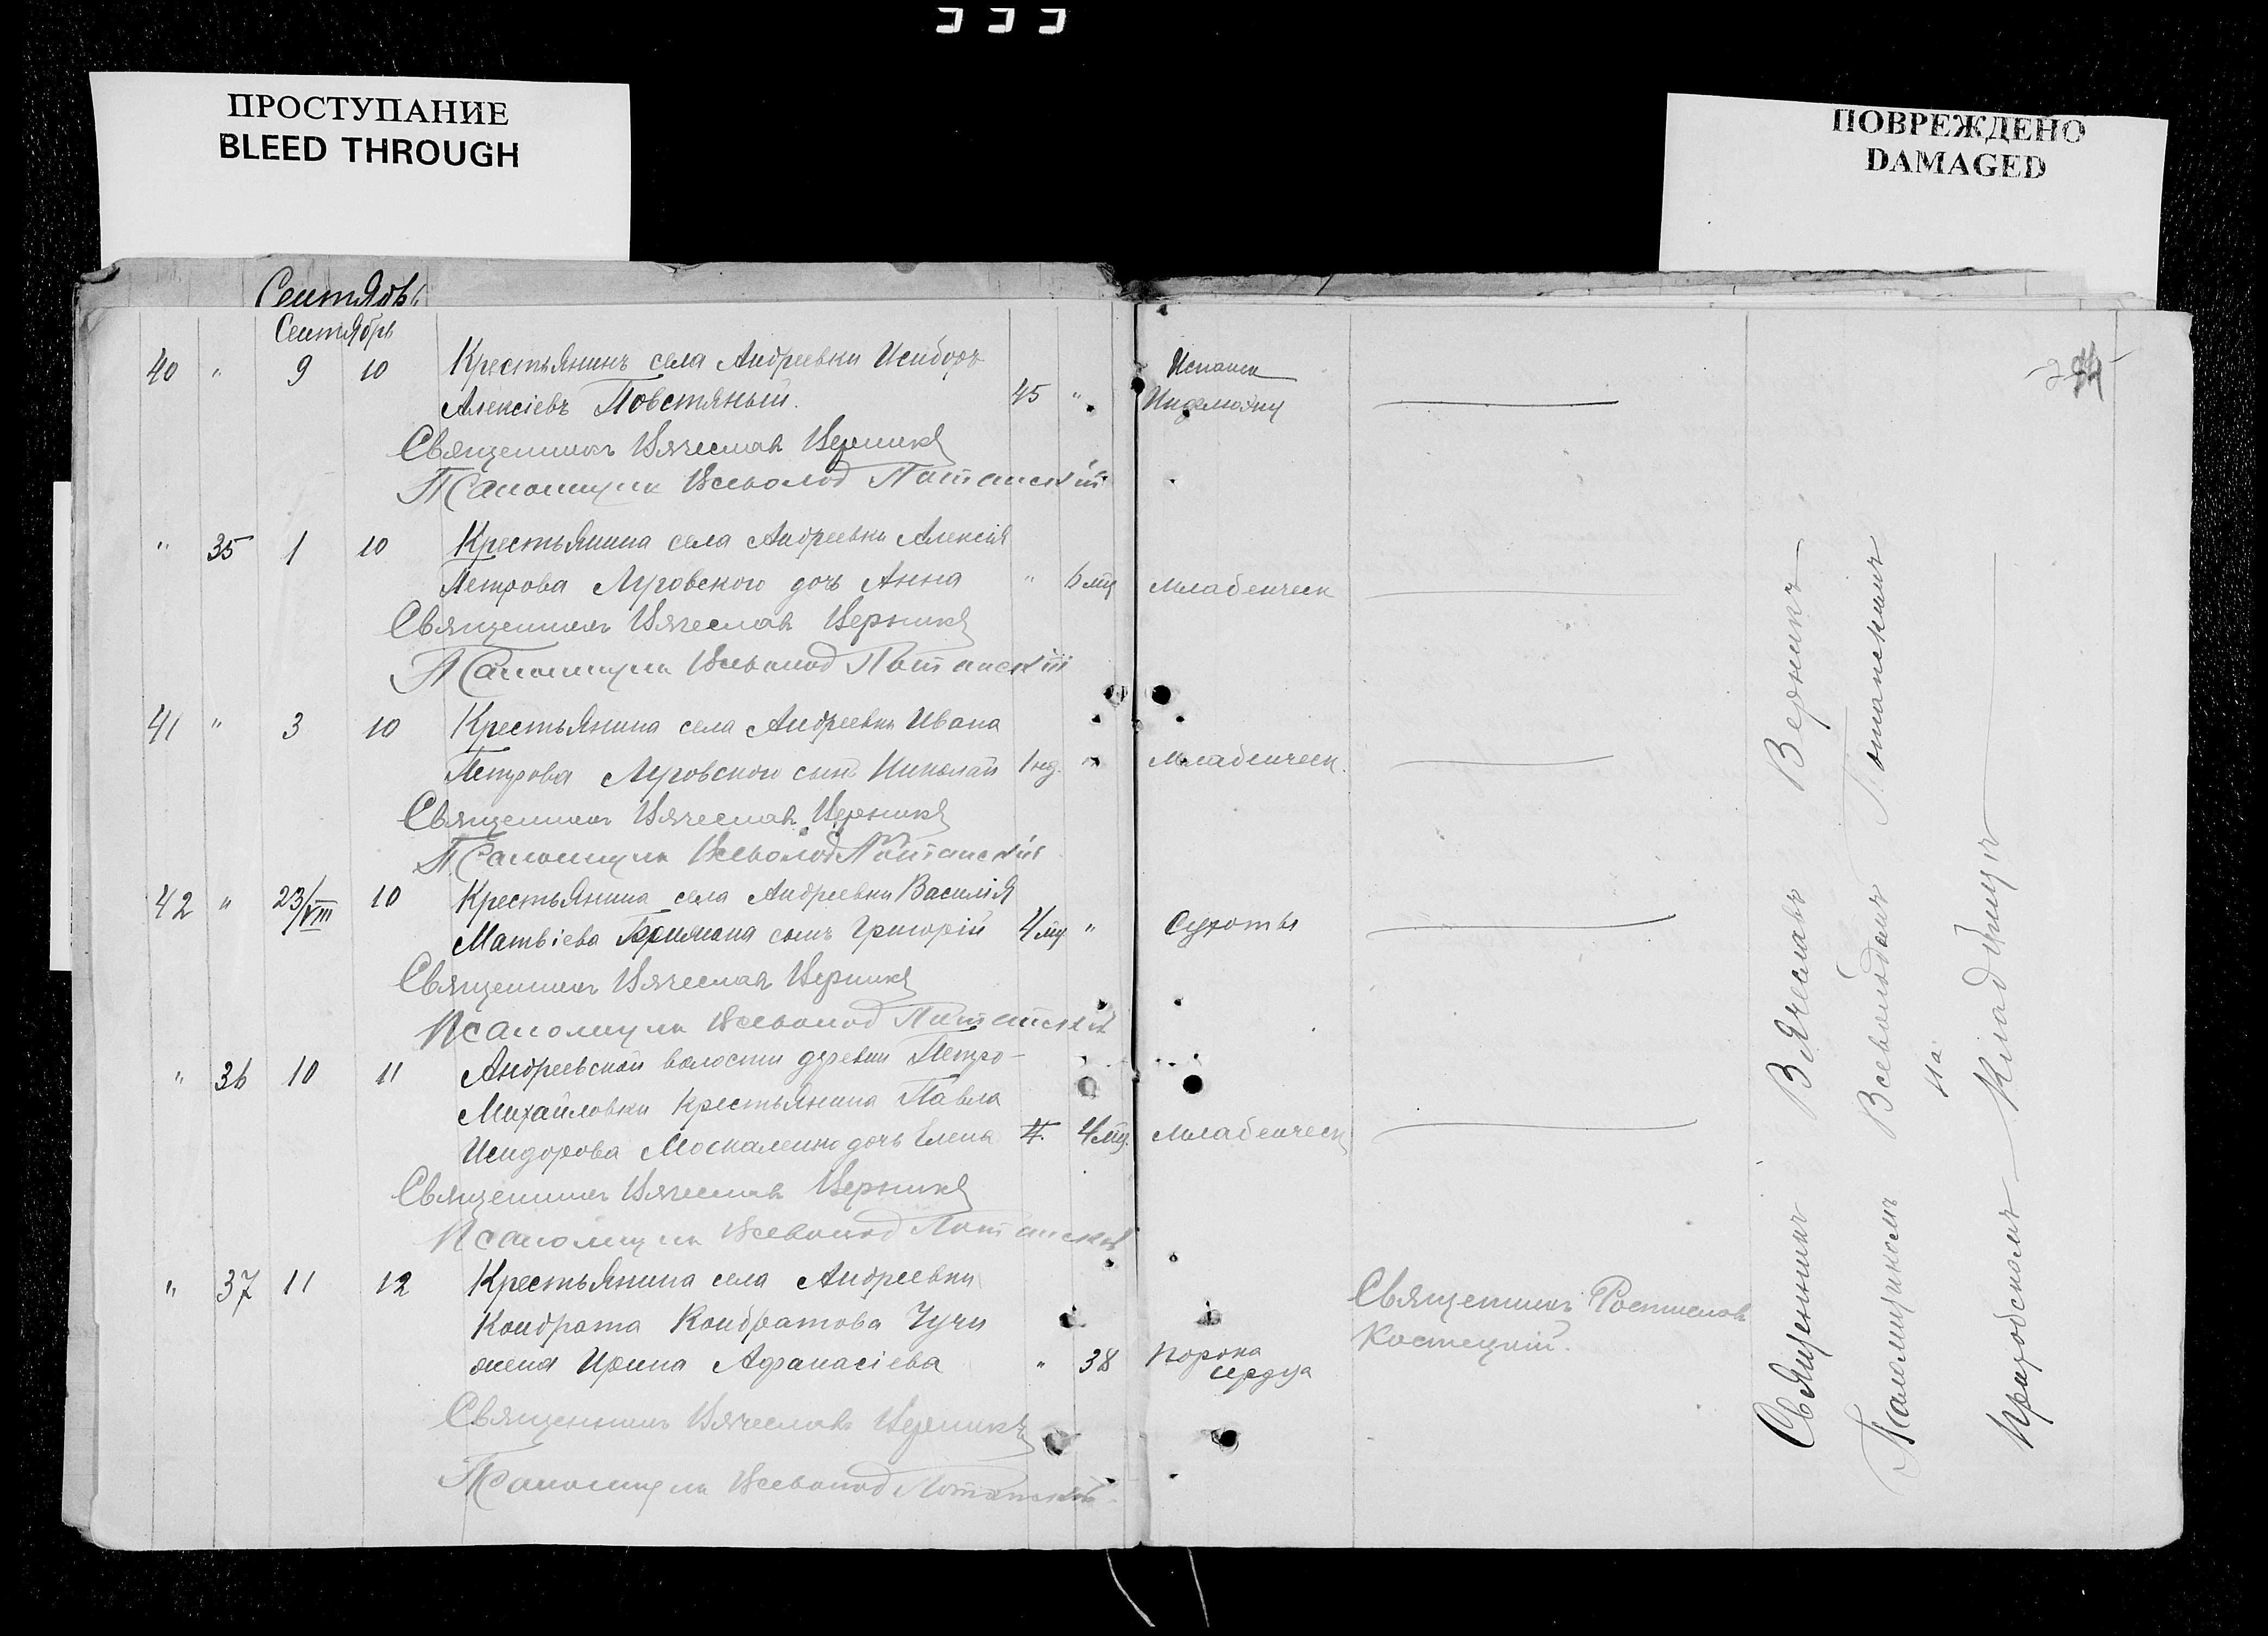 ПРОСТУПАНИЕ
BLEED THROUGH
ПОВРЕЖДЕНО
DAMAGED
Сентябрь
Сентябрь
40 " 9 10 Крестьянинъ села Андреевки Исидоръ Испанск
Алексіевъ Повстяный. 45 "
Священникъ Вячеслав Верникъ
Псаломщикъ Всеволод Потапскій
" 35 1 10 Крестьянина села Андреевки Алексія
Петрова Луговского дочь Анна " 6 мц Младенческ
Священникъ Вячеслав Верникъ
Псаломщикъ Всеволод Потапскій
41 " 3 10 Крестьянина села Андреевки Ивана
Петрова Луговского сынъ Николай 1 нд. " Младенческ.
Священникъ Вячеслав Верникъ
Псаломщикъ Всеволод Потапскій
42 " 23/VIII 10 Крестьянина села Андреевки Василія
Матвіева сынъ Григорій 4 мц " Сухоты
Священникъ Вячеслав Верникъ
Псаломщикъ Всеволод Потапскій
" 36 10 11 Андреевской волости деревни Петро-
Михайловки крестьянина Павла
Исидорова Москаленко дочь Елена 4 мц. Младенческ
Священникъ Вячеслав Верникъ
Псаломщикъ Всеволод Потапскій
" 37 11 12 Крестьянина села Андреевки
Кондрата Кондратова Чучи
жена Ирина Афанасіева " 38 Порока
сердца
Священникъ
Костецкій.
Священникъ Вячеславъ Верникъ
Псаломщикъ Всеволод Потапскій
Священник Вячеславъ Верникъ
Псаломщикомъ Всеволодомъ Потапскимъ
На
Приходскомъ Кладбищѣ